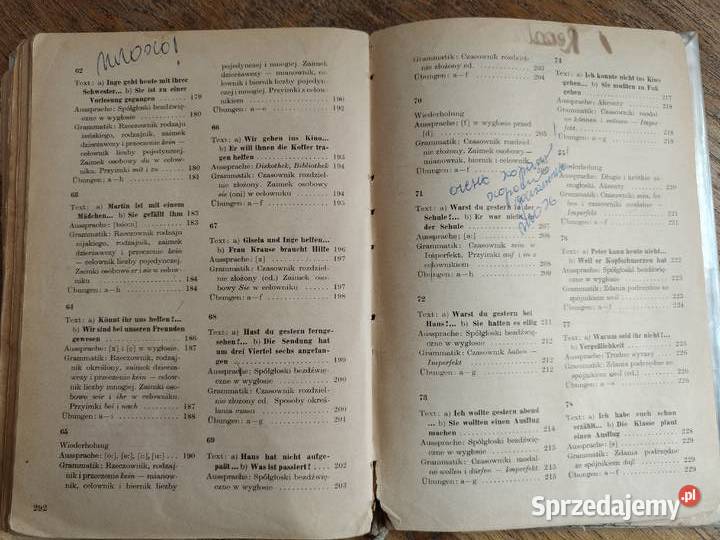 62
Text: a) Inge geht heute mit ihrer
Schwester... b) Sie ist zu einer
Vorlesung gegangen . . . 179
Aussprache: Spółgłoski bezdźwię-
czne w wygłosie . . . 180
Grammatik: Rzeczownik rodzaju
żeńskiego, rodzajnik, zaimek
dzierżawczy i przeczenie kein —
celownik liczby pojedynczej.
Zaimek osobowy du w celow-
niku. Przyimki mit i zu . . 180
Übungen: a—h . . . 181
63
Text: a) Martin ist mit einem
Mädchen... b) Sie gefällt ihm 183
Aussprache: 183
Grammatik: Rzeczownik rodzaju
nijakiego, rodzajnik, zaimek
dzierżawczy i przeczenie kein
— celownik liczby pojedynczej.
Zaimki osobowe er i sie w celow-
niku . . . 184
Übungen: a—h . . . 184
64
Text: a) Könnt ihr uns helfen?...
b) Wir sind bei unseren Freunden
gewesen . . . 186
Aussprache: [x] i [ç] w wygłosie. 187
Grammatik: Rzeczownik, rodzaj-
nik określony, zaimek dzierża-
wczy i przeczenie kein — celow-
nik liczby mnogiej. Zaimki oso-
bowe wir i ihr w celowniku.
Przyimki bei i nach . . . 187
Übungen: a—i . . . 188
65
Wiederholung
Aussprache: 190
Grammatik: Rzeczownik, rodzaj-
nik i przeczenie kein — mianow-
nik, celownik i biernik liczby
292
pojedynczej i mnogiej. Zaimek
dzierżawczy — mianownik, celow-
nik i biernik liczby pojedynczej
i mnogiej. Przyimki z celow-
nikiem . . . 190
Übungen: a—f . . . 192
66
Text: a) Wir gehen ins Kino...
b) Er will ihnen die Koffer tra-
gen helfen . . . 193
Aussprache: Diskothek, Bibliothek 194
Grammatik: Czasownik rozdziel-
nie złożony. Zaimek osobowy
sie (oni) w celowniku . . . 194
Übungen: a—f . . . 195
67
Text: a) Gisela und Inge helfen...
b) Frau Krause braucht Hilfe 196
Aussprache: [z] . . . 197
Grammatik: Czasownik rozdziel-
nie złożony (cd). Zaimek oso-
bowy Sie w celowniku . . 197
Übungen: a—f . . . 198
68
Text: a) Hast du gestern fernge-
sehen?... b) Die Sendung hat
um drei Viertel sechs angefan-
gen . . . 199
Aussprache: Spółgłoski bezdźwię-
czne w wygłosie . . . 200
Grammatik: Czasownik rozdziel-
nie złożony cd. Sposoby okreś-
lania czasu . . . 200
Übungen: a—g . . . 201
69
Text: a) Hans hat nicht aufge-
paßt... b) Was ist passiert? . 202
Aussprache: Spółgłoski bezdźwię-
czne w wygłosie . . . 203
Grammatik: Czasownik rozdziel-
nie złożony cd. . . . 203
Übungen: a—f . . . 204
70
Wiederholung
Aussprache: [f] w wygłosie przed
[d] . . . 205
Grammatik: Czasownik rozdziel-
nie złożony. Zaimek osobowy
— mianownik, biernik i celownik
Übungen: a—f
71
Text: a) Warst du gestern in der
Schule?... b) Er war nicht in
der Schule
Aussprache: [a:]
Grammatik: Czasownik sein w
Imperfekt. Przyimki auf i in z
celownikiem . . . 208
Übungen: a—f . . . 209
72
Text: a) Warst du gestern bei
Hans?... b) Sie hatten es eilig 211
Aussprache: Spółgłoski bezdźwię-
czne w wygłosie . . . 212
Grammatik: Czasownik haben —
Imperfekt . . . 212
Übungen: a—g . . . 212
73
Text: a) Ich wollte gestern abend
... b) Sie wollten einen Ausflug
machen . . . 214
Aussprache: Spółgłoski bezdźwię-
czne w wygłosie . . . 215
Grammatik: Czasowniki modal-
ne wollen i dürfen — Imperfekt 215
Übungen: a—f . . . 215
74
Text: a) Ich konnte nicht ins Kino
gehen... b) Sie mußten zu Fuß
gehen . . . 217
Aussprache: Akcenty . . . 218
Grammatik: Czasowniki modal-
ne können i müssen — Imper-
fekt . . . 218
Übungen: a—f . . . 219
75
Wiederholung
Aussprache: Długie i krótkie sa-
mogłoski. Akcenty
Imperfekt
Übungen: a—f
76
Text: a) Peter kann heute nicht...
b) Weil er Kopfschmerzen hat 223
Aussprache: Spółgłoski bezdźwię-
czne w wygłosie . . . 223
Grammatik: Zdania podrzędne
ze spójnikiem weil . . . 223
Übungen: a—f . . . 224
77
Text: a) Warum seid ihr nicht?...
b) Vergeßlichkeit . . . 226
Aussprache: Trudne wyrazy . 227
Grammatik: Zdania podrzędne ze
spójnikiem weil (cd.) . . . 227
Übungen: a—f . . . 227
78
Text: a) Ich habe euch schon
erzählt... b) Die Klasse plant
einen Ausflug . . . 229
Aussprache: [ə] . . . 229
Grammatik: Zdania podrzędne
ze spójnikiem daß . . . 229
Sprzedajemy.pl